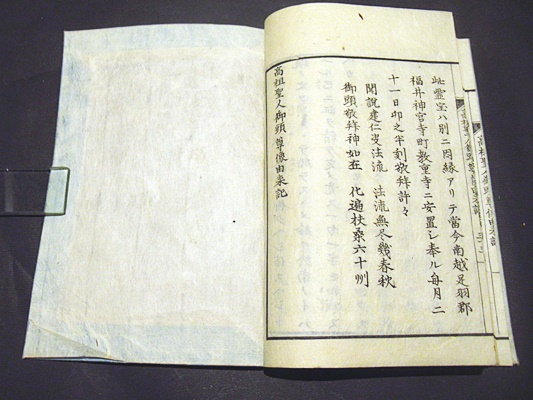 此霊宝ハ別ニ因縁アリテ當今南越足羽郡
福井神宮寺町教重寺ニ安置シ奉ル毎月二
十一日卯之半刻敬拜許々
聞說建仁安法流　法流無尽幾春秋
御頭敬拜神如在　化遍扶桑六十州
高祖聖人御頭尊像由来記